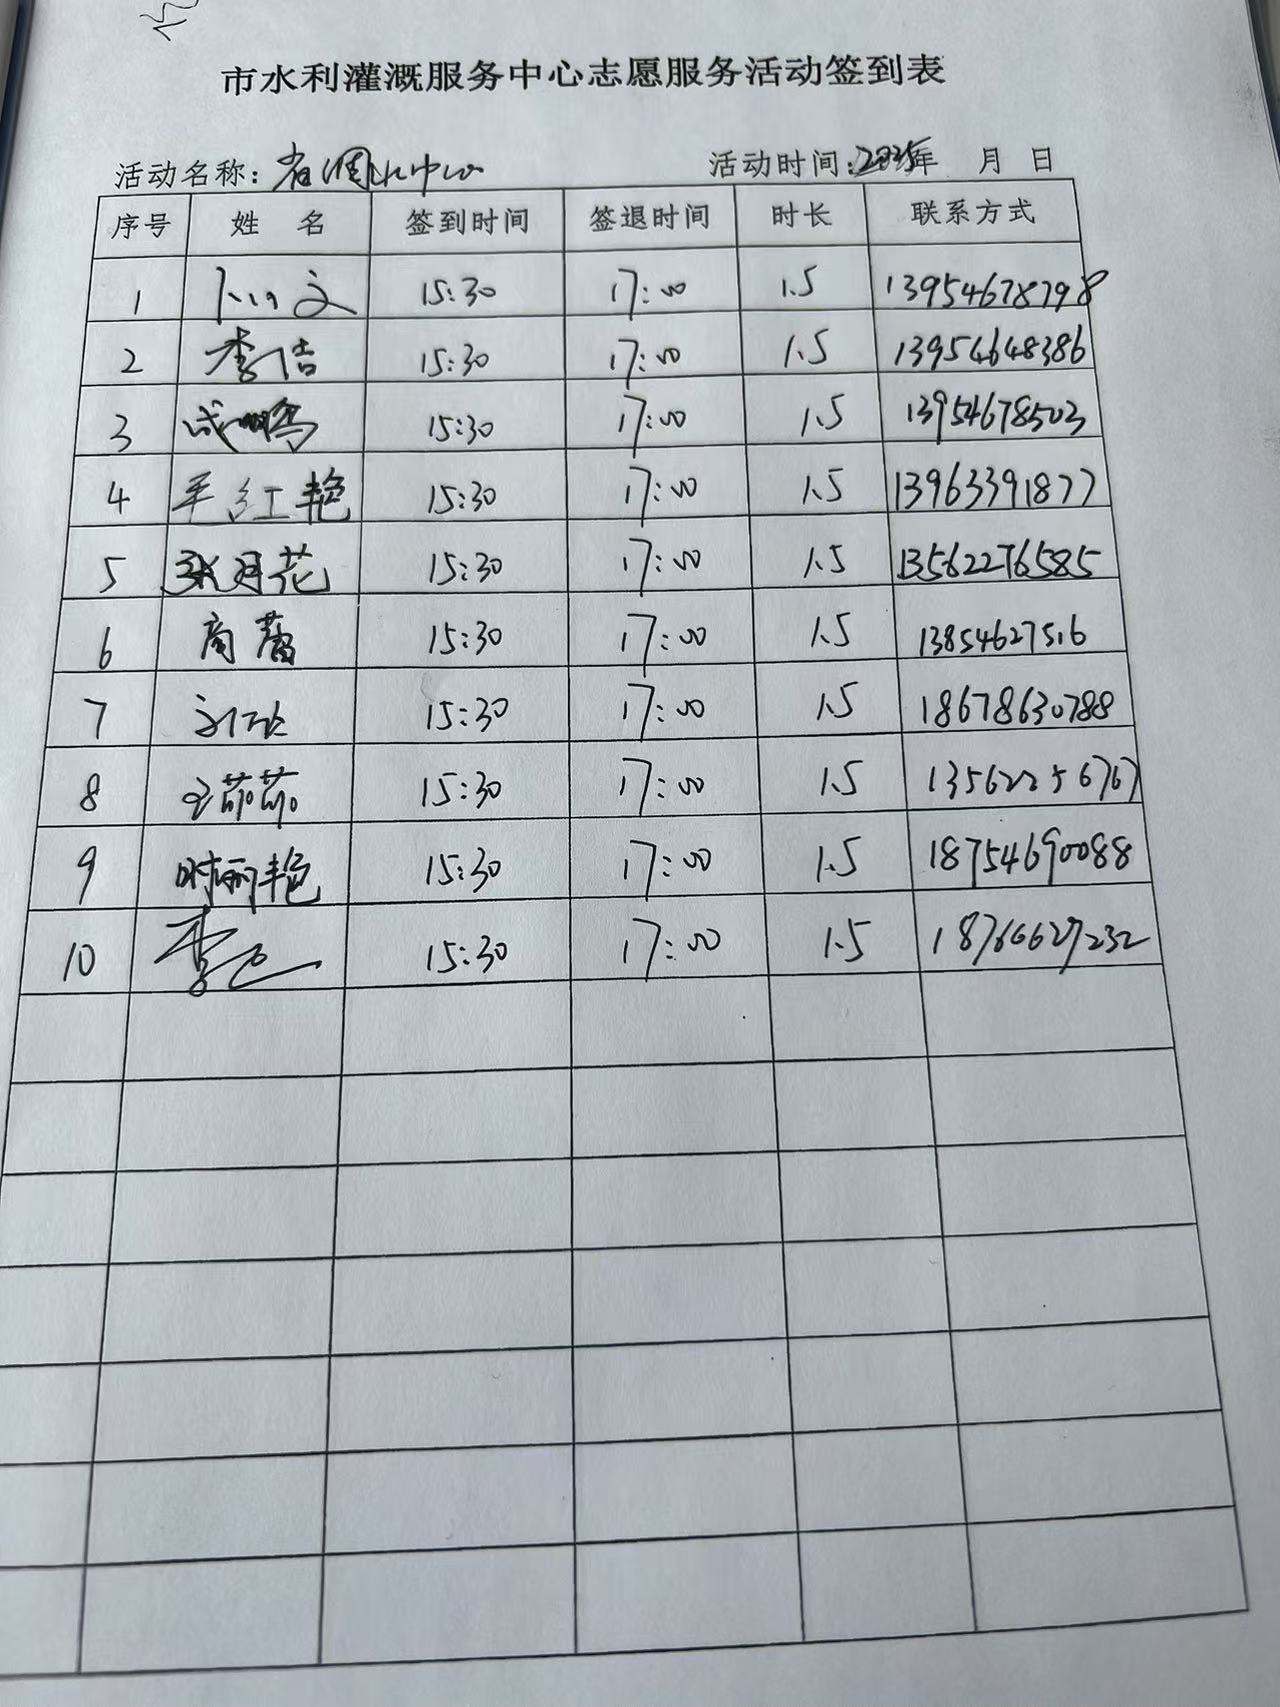 市水利灌溉服务中心志愿服务活动签到表
活动名称：省调水中心 活动时间：2025年 月 日
序号 姓 名 签到时间 签退时间 时长 联系方式
1 15:30 17:00 1.5 13954678798
2 李洁 15:30 17:00 1.5 13954648386
3 15:30 17:00 1.5 13954678503
4 红艳 15:30 17:00 1.5 13963391877
5 张月花 15:30 17:00 1.5 13562276585
6 商蕾 15:30 17:00 1.5 13854627516
7 15:30 17:00 1.5 18678630788
8 王茹茹 15:30 17:00 1.5 13562256767
9 时丽艳 15:30 17:00 1.5 18754690088
10 李 15:30 17:00 1.5 18766627232